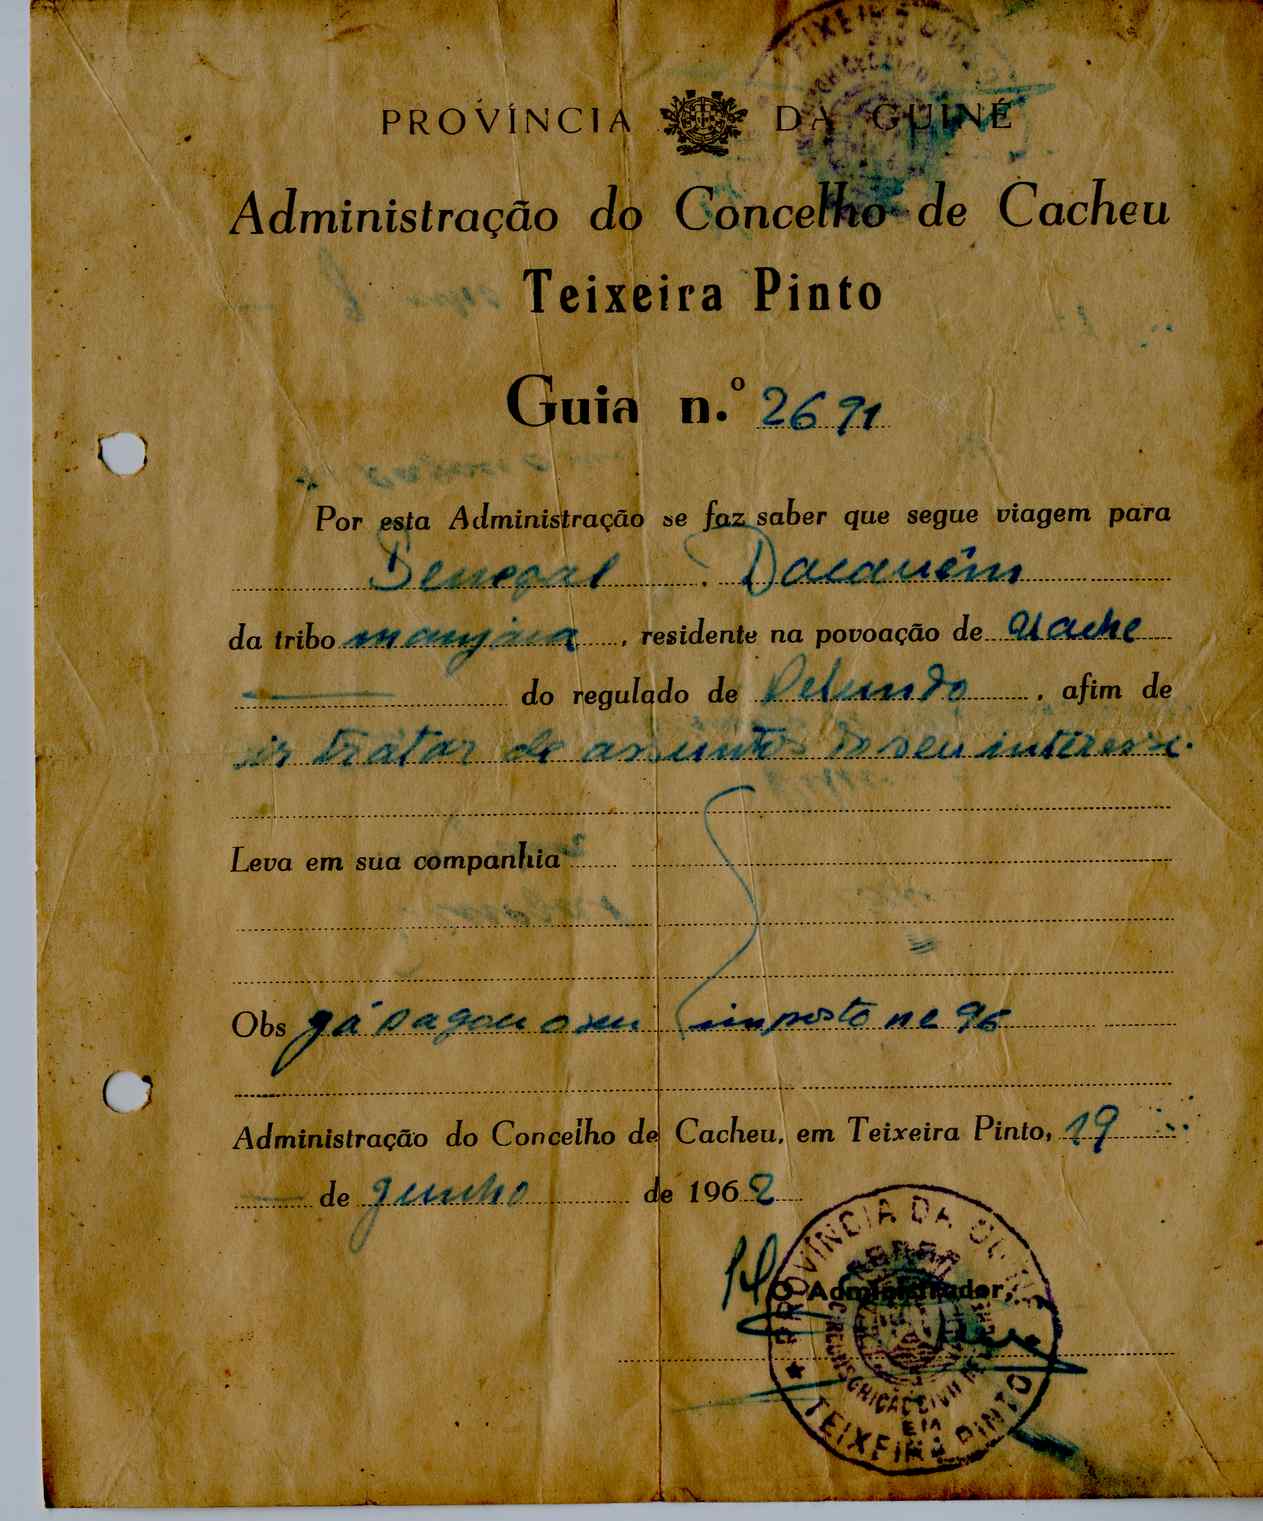 TEIXEIRA
PROVÍNCIA DA GUINÉ
Administração do Concelho de Cacheu
Teixeira Pinto
Guia n.º 2691
Por esta Administração se faz saber que segue viagem para
Senegal
da tribo manjaca, residente na povoação de
do regulado de Pelundo, afim de
ir tratar de assuntos do seu interesse.
Leva em sua companhia
Obs já pagou o seu imposto
Administração do Concelho de Cacheu, em Teixeira Pinto, 19
de junho de 1962
O Administrador,
PROVÍNCIA DA GUINÉ
CIRCUNSCRIÇÃO CIVIL DE
TEIXEIRA PINTO